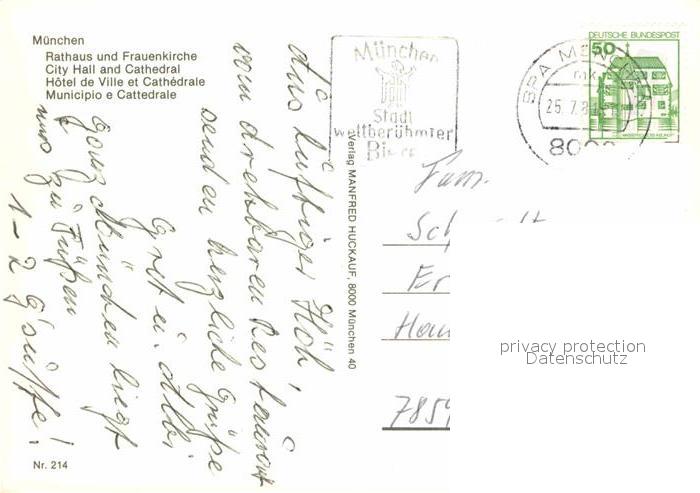 München
Rathaus und Frauenkirche
City Hall and Cathedral
Hôtel de Ville et Cathédrale
Municipio e Cattedrale
Aus luftiger Höh',
vom drehbaren Restaurant
senden herzliche Grüße
Gret u. Albi
Ganz München liegt
uns zu Füßen
1-2 G'suffe!
Nr. 214
Verlag MANFRED HUCKAUF, 8000 München 40
München
Stadt
weltberühmter
Biere
BPA MÜNCHEN
mk
25.7.8
80
DEUTSCHE BUNDESPOST
50
Fam.
Sch
Er
Hau
7859
privacy protection
Datenschutz